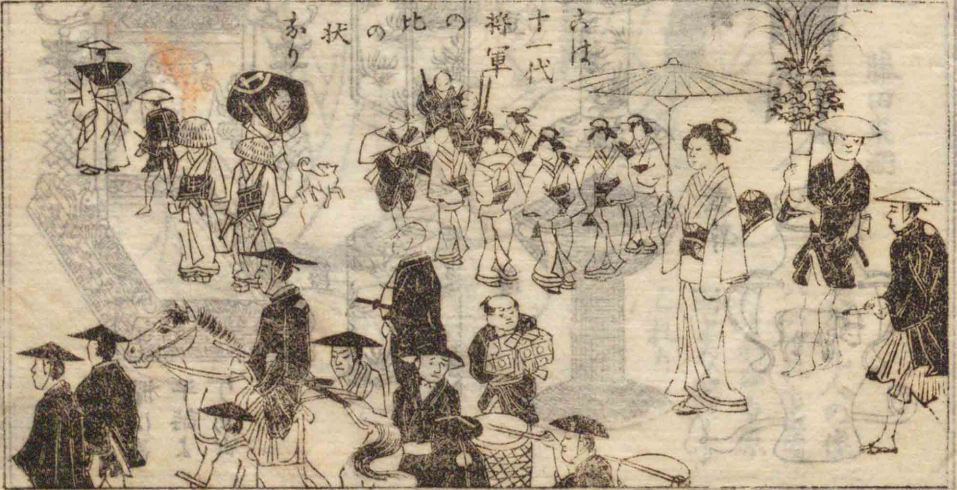 こは
十一代
将軍
の
比
の
状
なり